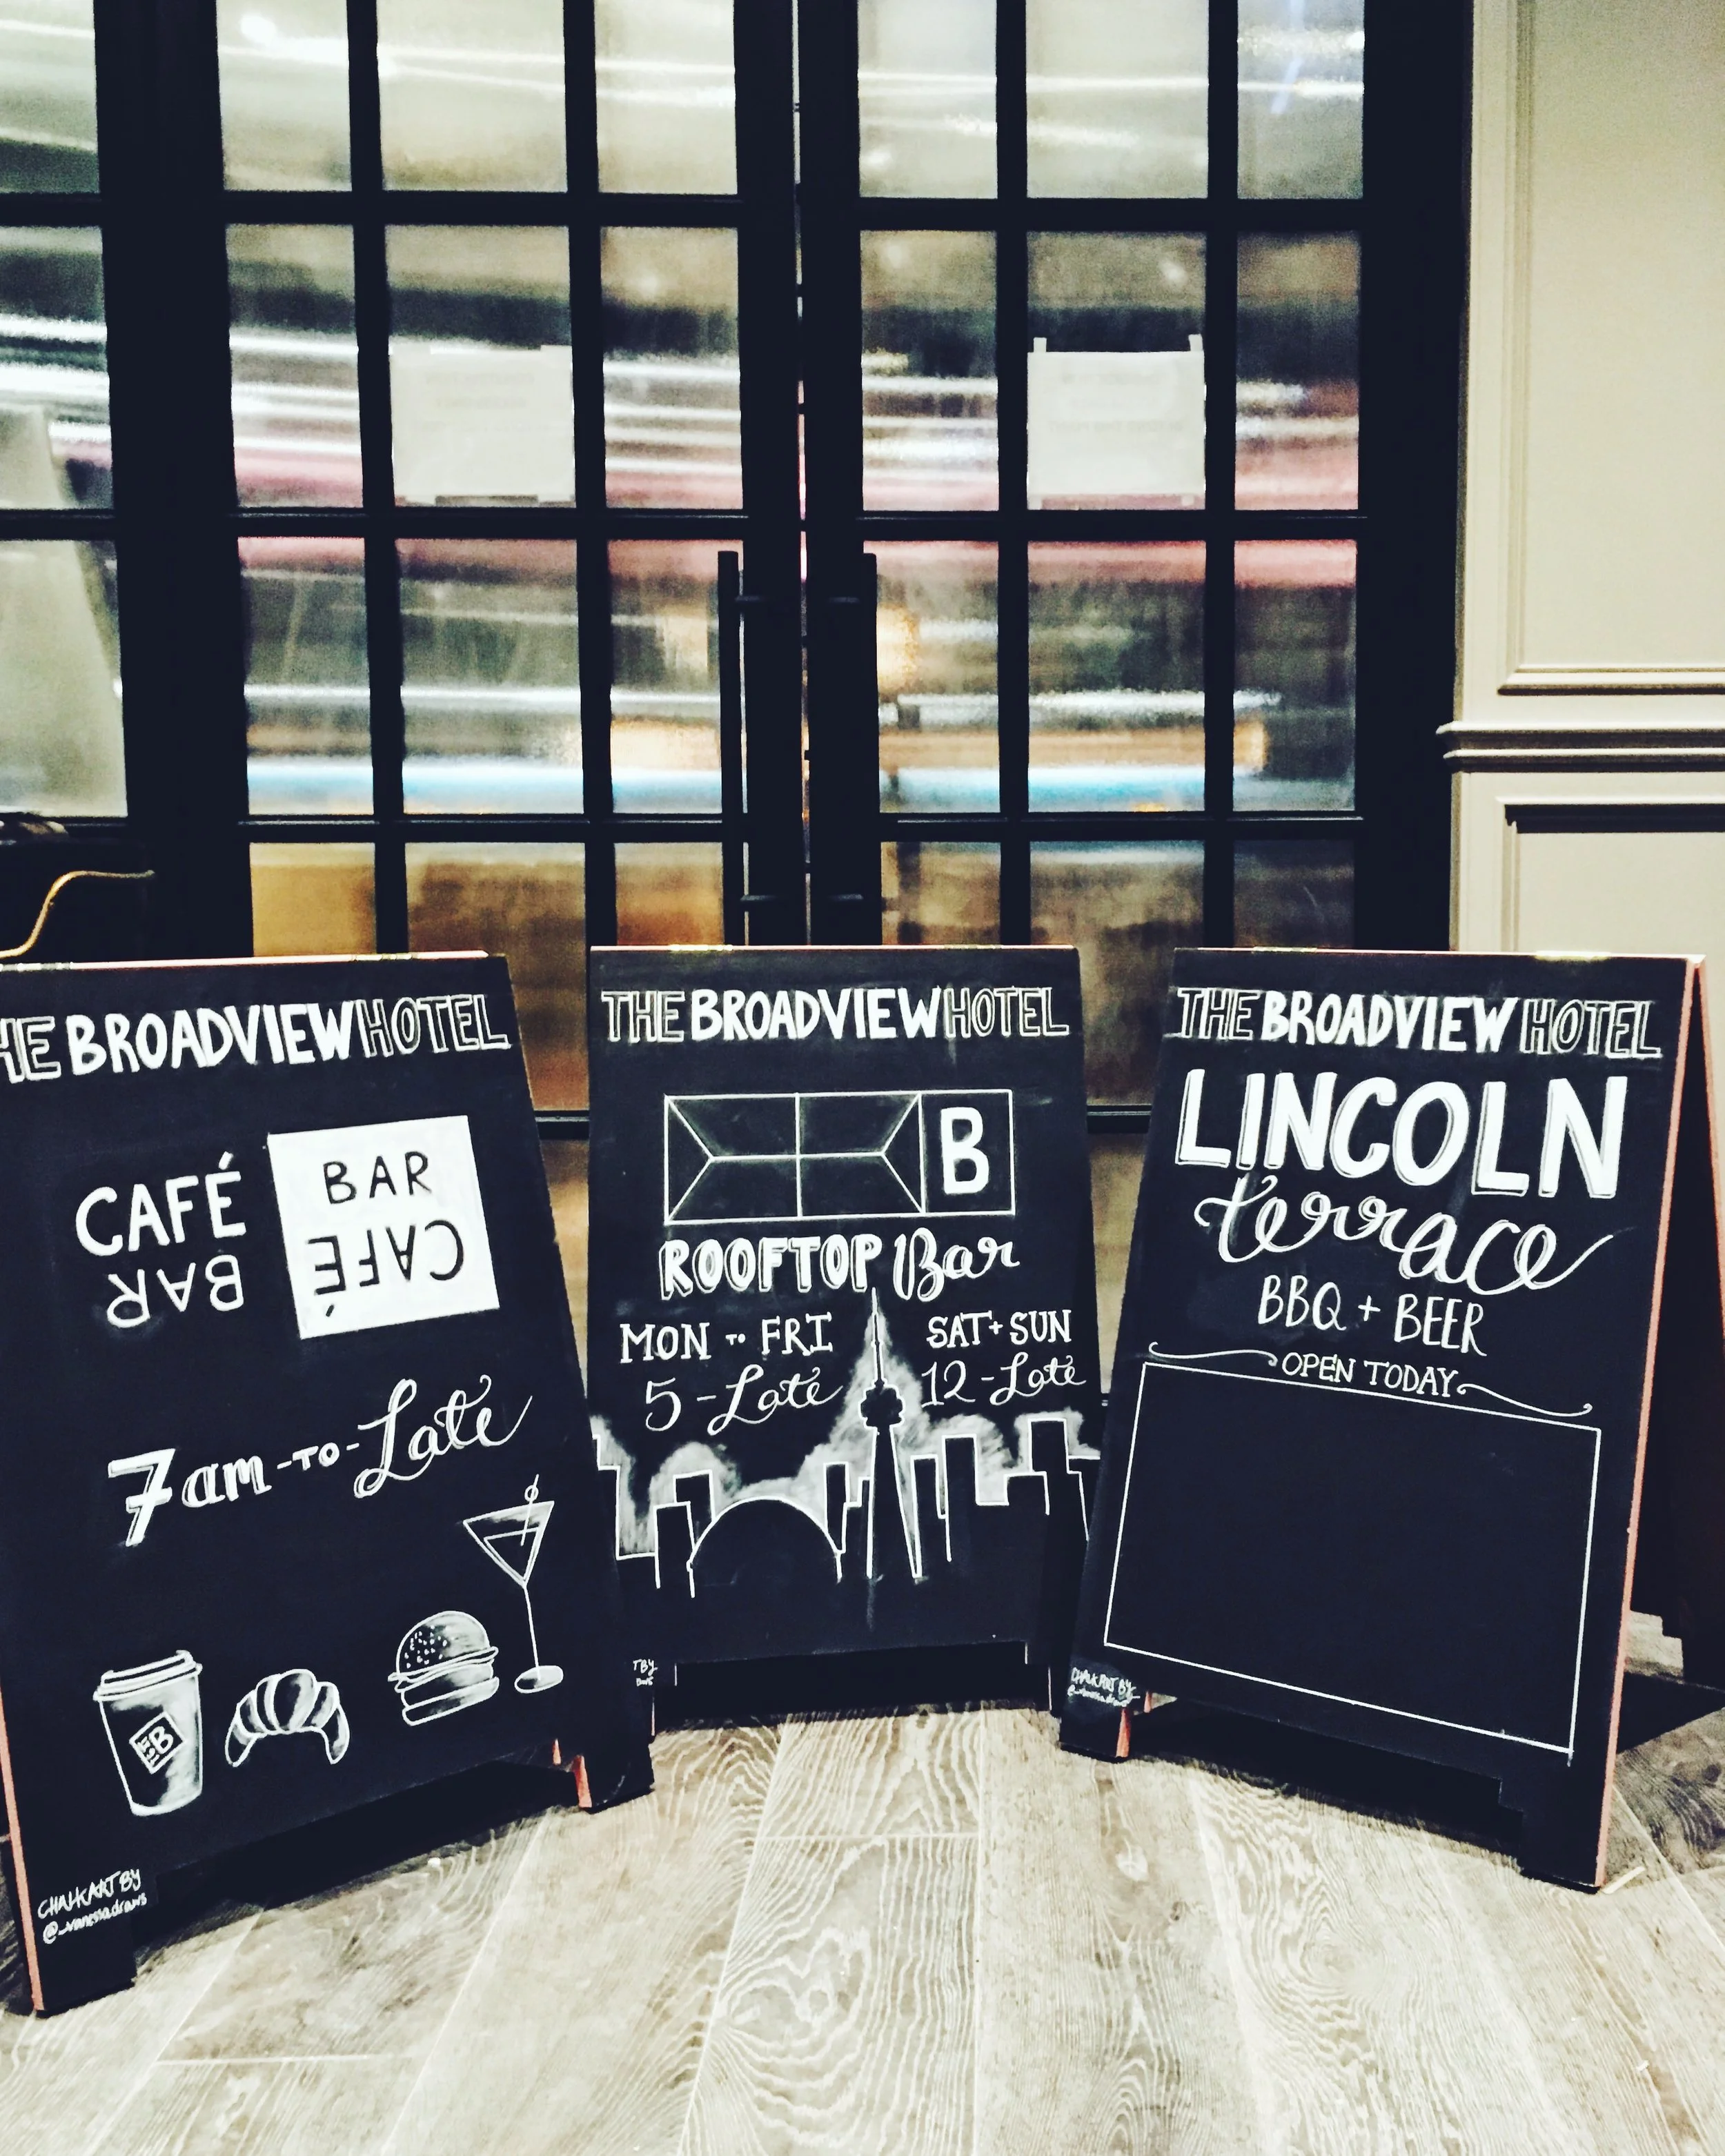 THE BROADVIEW HOTEL
CAFÉ
BAR
BAR
CAFÉ
7am-TO-Late
B
CHALKART BY
@_vanessadraws
THE BROADVIEW HOTEL
B
ROOFTOP Bar
MON TO FRI
5-Late
SAT+SUN
12-Late
T BY
THE BROADVIEW HOTEL
LINCOLN
terrace
BBQ + BEER
OPEN TODAY
CHALKART BY
@_vanessadraws